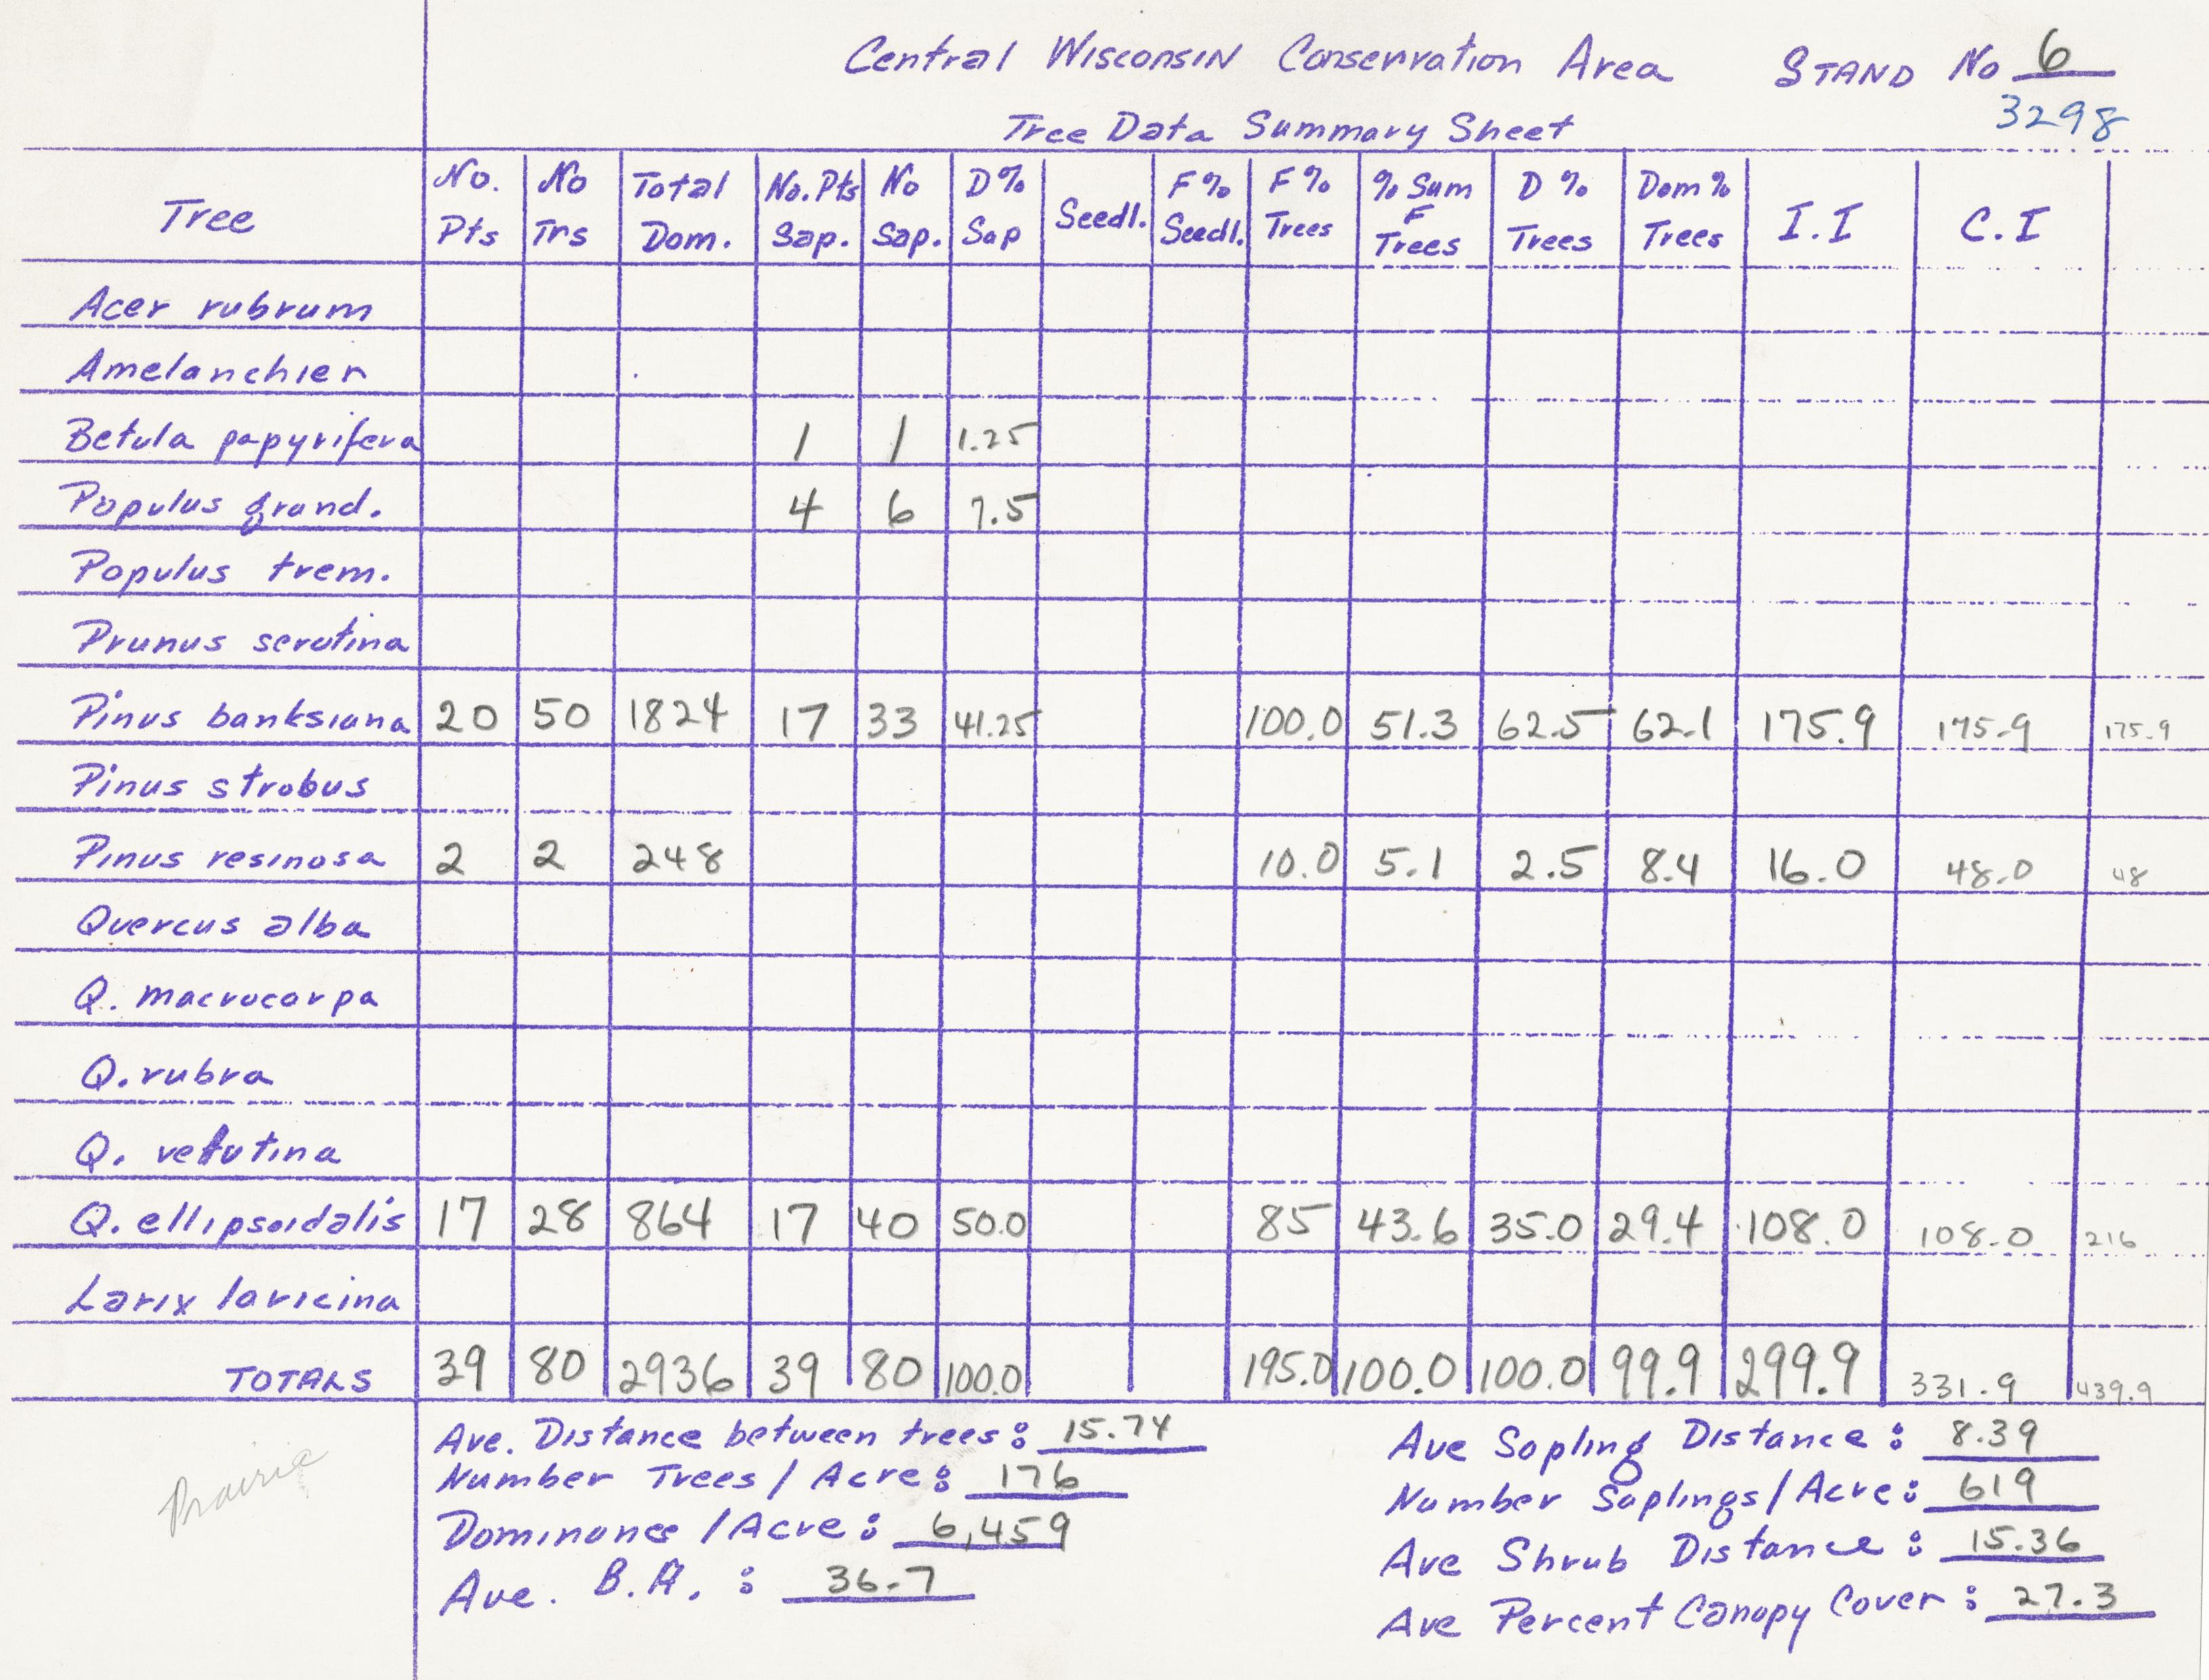 Central Wisconsin Conservation Area STAND No 6
3298
Tree Data Summary Sheet
Tree No. Pts No Trs Total Dom. No. Pts Sap. No Sap. D% Sap Seedl. F% Seedl. F% Trees % Sum F Trees D % Trees Dom % Trees I.I C.I
Acer rubrum
Amelanchier
Betula papyrifera 1 1 1.25
Populus grand. 4 6 7.5
Populus trem.
Prunus serotina
Pinus banksiana 20 50 1824 17 33 41.25 100.0 51.3 62.5 62.1 175.9 175.9 175.9
Pinus strobus
Pinus resinosa 2 2 248 10.0 5.1 2.5 8.4 16.0 48.0 48
Quercus alba
Q. macrocarpa
Q. rubra
Q. velutina
Q. ellipsoidalis 17 28 864 17 40 50.0 85 43.6 35.0 29.4 108.0 108.0 216
Larix laricina
TOTALS 39 80 2936 39 80 100.0 195.0 100.0 100.0 99.9 299.9 331.9 439.9
Prairie
Ave. Distance between trees: 15.74
Number Trees / Acre: 176
Dominance / Acre: 6,459
Ave. B.A. : 36.7
Ave Sapling Distance: 8.39
Number Saplings / Acre: 619
Ave Shrub Distance: 15.36
Ave Percent Canopy Cover: 27.3